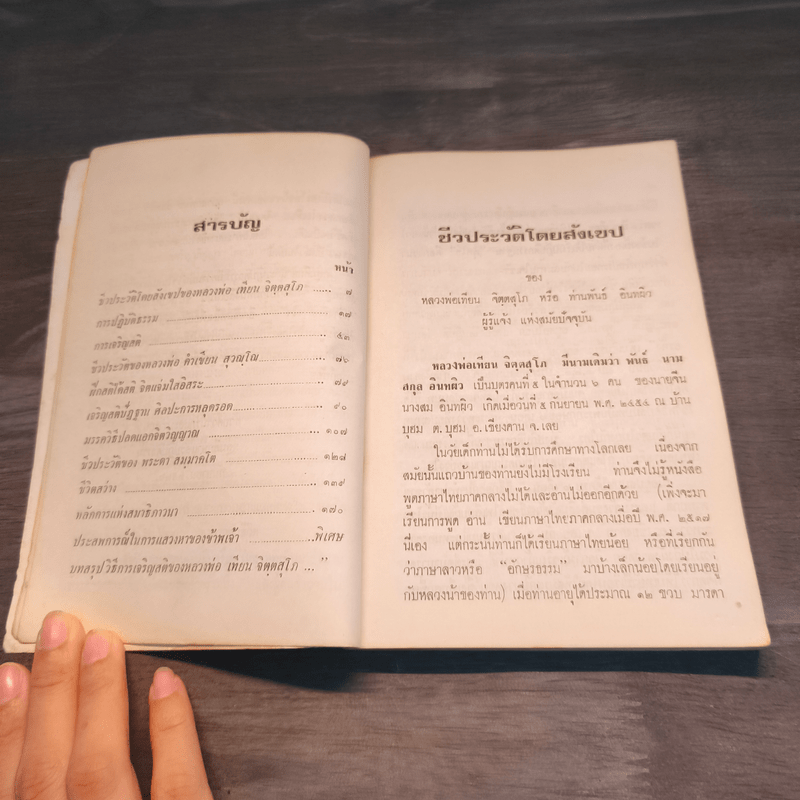 สารบัญ
หน้า
ชีวประวัติโดยสังเขปของหลวงพ่อ เทียน จิตฺตสุโภ ...... ๗
การปฏิบัติธรรม ...... ๑๗
การเจริญสติ ...... ๔๓
ชีวประวัติของหลวงพ่อ คำเขียน สุวณฺโณ ...... ๗๖
ฝึกสติให้สติ จิตแจ่มใสอิสระ ...... ๗๙
เจริญสติปัฏฐาน คือประการหลุดรอด ...... ๙๐
มรรควิธีปลดแอกจิตวิญญาณ ...... ๑๐๗
ชีวประวัติของ พระดา สมฺมาคโต ...... ๑๒๘
ชีวิตสว่าง ...... ๑๓๙
หลักการแห่งสมาธิภาวนา ...... ๑๗๐
ประสพการณ์ในการแสวงหาของข้าพเจ้า ......พิเศษ
บทสรุปวิธีการเจริญสติของหลวงพ่อ เทียน จิตฺตสุโภ ..."
ชีวประวัติโดยสังเขป
ของ
หลวงพ่อเทียน จิตฺตสุโภ หรือ ท่านพันธ์ อินทผิว
ผู้รู้แจ้ง แห่งสมัยปัจจุบัน
หลวงพ่อเทียน จิตฺตสุโภ มีนามเดิมว่า พันธ์ นาม
สกุล อินทผิว เป็นบุตรคนที่ ๕ ในจำนวน ๖ คน ของนายจีน
นางสม อินทผิว เกิดเมื่อวันที่ ๕ กันยายน พ.ศ. ๒๔๕๔ ณ บ้าน
บุฮม ต. บุฮม อ. เชียงคาน จ. เลย
ในวัยเด็กท่านไม่ได้รับการศึกษาทางโลกเลย เนื่องจาก
สมัยนั้นแถวบ้านของท่านยังไม่มีโรงเรียน ท่านจึงไม่รู้หนังสือ
พูดภาษาไทยภาคกลางไม่ได้และอ่านไม่ออกอีกด้วย (เพิ่งจะมา
เรียนการพูด อ่าน เขียนภาษาไทยภาคกลางเมื่อปี พ.ศ. ๒๕๑๗
นี่เอง แต่กระนั้นท่านก็ได้เรียนภาษาไทยน้อย หรือที่เรียกกัน
ว่าภาษาลาวหรือ "อักษรธรรม" มาบ้างเล็กน้อยโดยเรียนอยู่
กับหลวงน้าของท่าน) เมื่อท่านอายุได้ประมาณ ๑๒ ขวบ มารดา